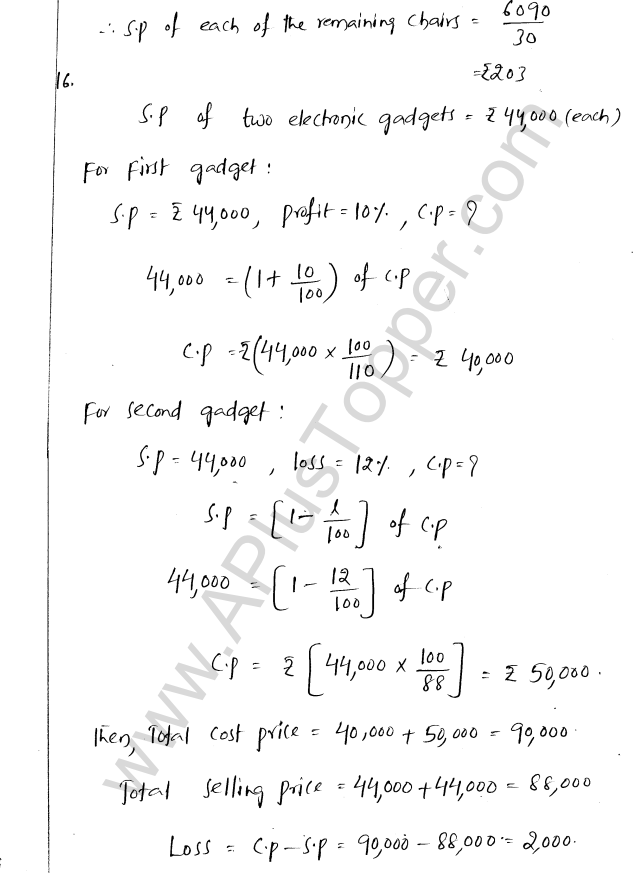 ∴ S.P of each of the remaining chairs = 6090/30
=₹203
16.
S.P of two electronic gadgets = ₹ 44,000 (each)
For First gadget :
S.P = ₹ 44,000, profit = 10%, C.P = ?
44,000 = (1 + 10/100) of C.P
C.P = ₹(44,000 × 100/110) = ₹ 40,000
For second gadget :
S.P = 44,000 , loss = 12% , C.P = ?
S.P = [1 - l/100] of C.P
44,000 = [1 - 12/100] of C.P
C.P = ₹ [44,000 × 100/88] = ₹ 50,000.
Then, Total cost price = 40,000 + 50,000 = 90,000.
Total selling price = 44,000 + 44,000 = 88,000
Loss = C.P - S.P = 90,000 - 88,000 = 2,000.
www.APlusTopper.com